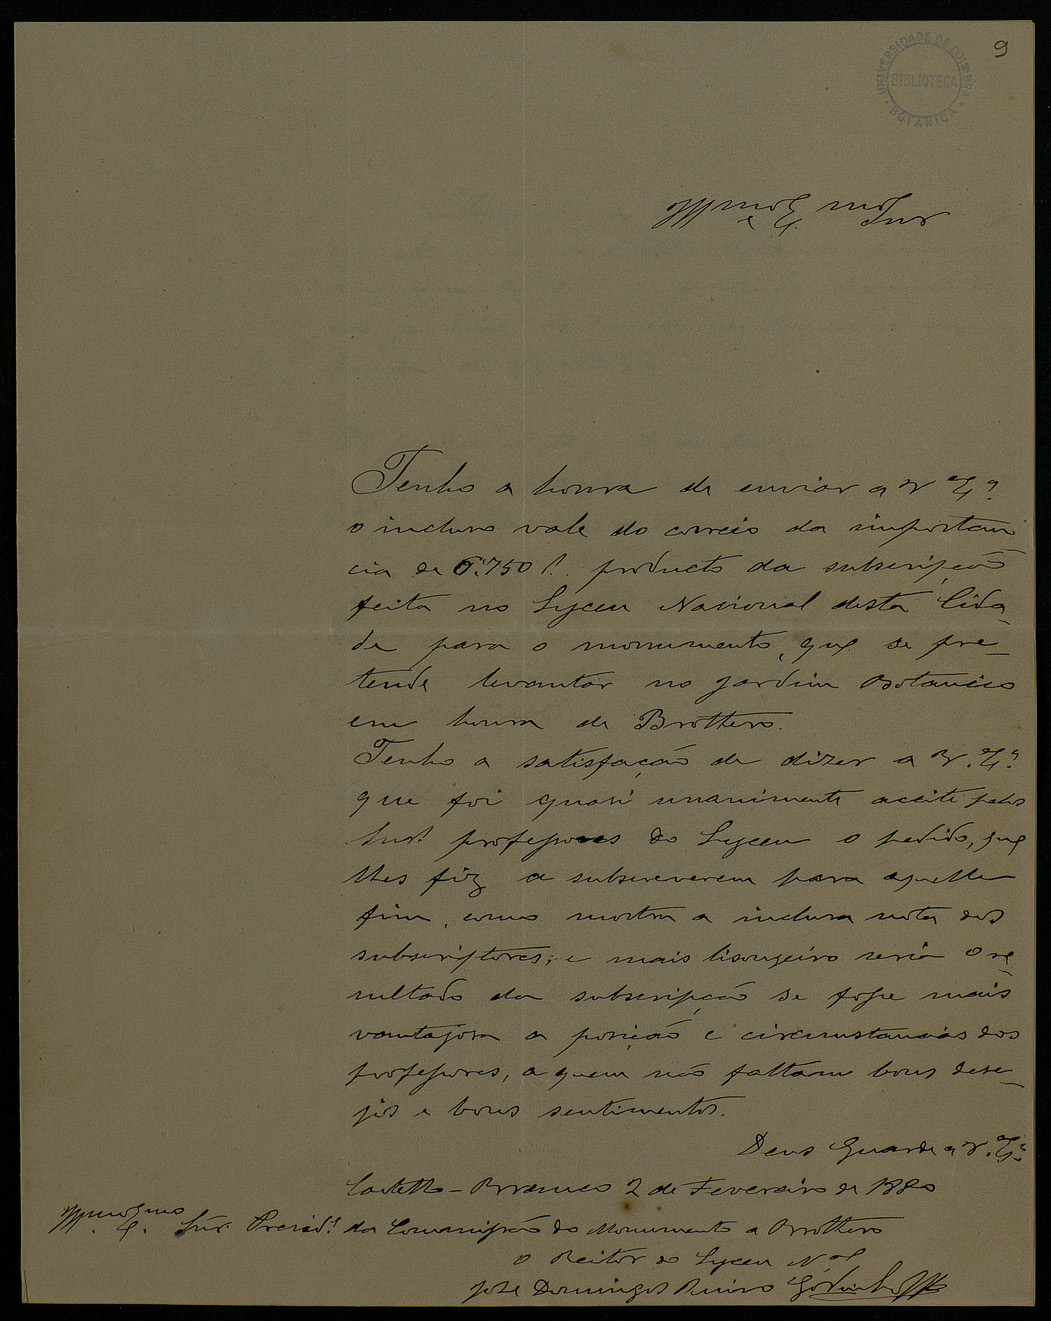 9
UNIVERSIDADE DE COIMBRA
BIBLIOTECA
BOTANICA
Illmo e Exmo Snr
Tenho a honra de enviar a V Exª
o incluso vale do correio da importan
cia de 6:750 r. producto da subscripção
feita no Lyceu Nacional desta Cida
de para o monumento, que se pre-
tende levantar no jardim Botanico
em honra de Brottero.
Tenho a satisfação de dizer a V. Exª
que foi quasi unanimente aceite pelos
Snrs professores do Lyceu o pedido, que
lhes fiz a subscreverem para aquelle
fim, como mostra a inclusa nota dos
subscriptores; e mais lisongeiro seria o re
sultado da subscripção se fosse mais
vantajosa a posição e circumstancias dos
professores, a quem não faltam bons dese-
jos e bons sentimentos.
Deus Guarde a V. Exª
Castello-Branco 2 de Fevereiro de 1880
Illmo e Exmo Snr. Presid.e da Commissão do Monumento a Brottero
O Reitor do Lyceu N.al
José Domingos Godinho